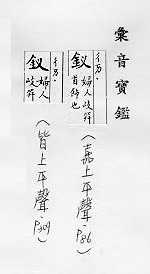 彙音寶鑑
釵 婦人歧筓
首飾也
(嘉上平聲, P86)
釵 婦人
歧筓
(皆上平聲,